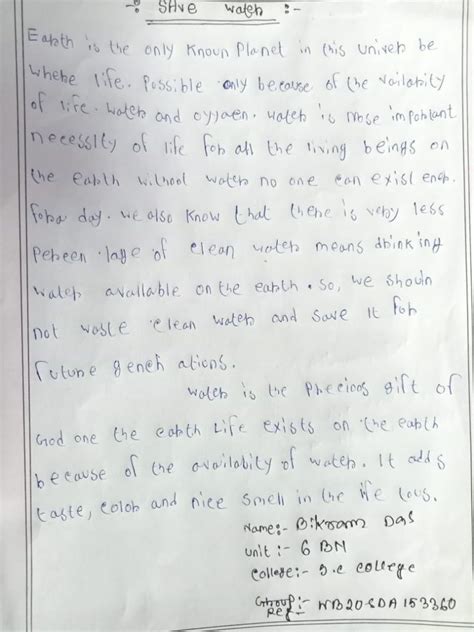 -: SAve water :-
Earth is the only Known Planet in this univer be
where life. Possible only because of the vailabity
of life. water and oyyaen. water is mose important
necessity of life for all the living beings on
the earth without water no one can exist ener.
fora day. we also know that there is very less
Perceen.lage of clean water means drinking
water available on the earth. so, we shouln
not waste clean water and save it for
future gener ations.
water is the Precious gift of
God one the earth Life exists on the earth
because of the availabity of water. It adds
taste, color and nice smell in the life lous.
Name:- Bikram Das
unit :- 6 BN
college:- college
Group Ref :- WB20SDA153360